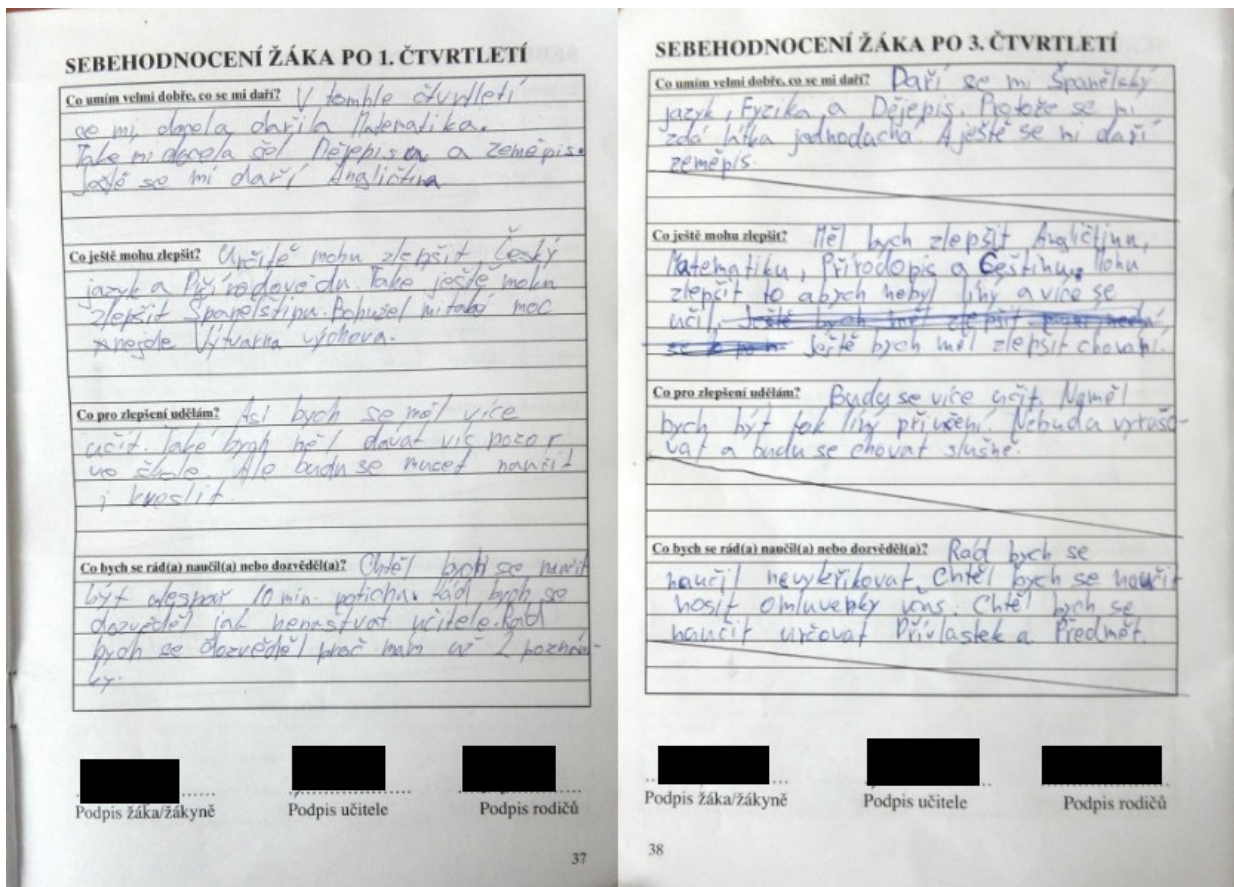 SEBEHODNOCENÍ ŽÁKA PO 1. ČTVRTLETÍ
Co umím velmi dobře, co se mi daří? V tomhle čtvrtletí
se mi docela dařila Matematika.
Take mi docela šel Dějepis a zeměpis.
Ještě se mi daří Angličtina
Co ještě mohu zlepšit? Určitě mohu zlepšit Český
jazyk a Přírodovědu. Take ještě mohu
zlepšit Španělštinu. Bohužel mi moc
nejde Výtvarna výchova.
Co pro zlepšení udělám? Asi bych se měl více
učit. Také bych měl dávat víc pozor
ve škole. Ale budu se muset naučit
i kreslit.
Co bych se rád(a) naučil(a) nebo dozvěděl(a)? Chtěl bych se naučit
být alespoň 10 min. potichu. Rád bych se
dozvěděl jak nenastvat učitele. Rád
bych se dozvěděl proč mám už 2 poznám-
ky.
Podpis žáka/žákyně
Podpis učitele
Podpis rodičů
37
SEBEHODNOCENÍ ŽÁKA PO 3. ČTVRTLETÍ
Co umím velmi dobře, co se mi daří? Daří se mi Španělský
jazyk, Fyzika a Dějepis. Protože se mi
zdá látka jednoduchá. A ještě se mi daří
zeměpis.
Co ještě mohu zlepšit? Měl bych zlepšit Angličtinu,
Matematiku, Přírodopis a Češtinu. Mohu
zlepšit to abych nebyl líný a více se
učil. Ještě bych měl zlepšit
Ještě bych měl zlepšit chovaní.
Co pro zlepšení udělám? Budu se více učit. Neměl
bych být tak líný při učení. Nebudu vyrušo-
vat a budu se chovat slušně.
Co bych se rád(a) naučil(a) nebo dozvěděl(a)? Rád bych se
naučil nevykřikovat. Chtěl bych se naučit
nosit omluvenky včas. Chtěl bych se
naučit určovat Přívlastek a Předmět.
Podpis žáka/žákyně
Podpis učitele
Podpis rodičů
38